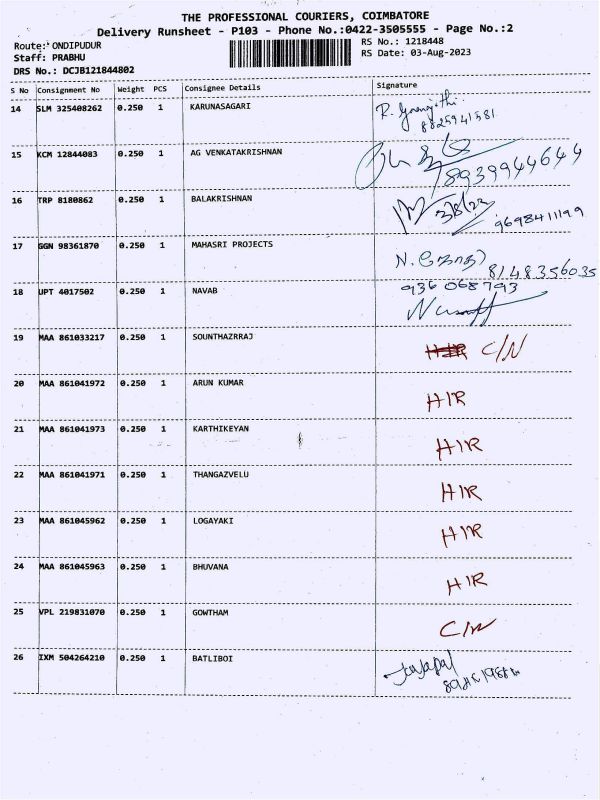 THE PROFESSIONAL COURIERS, COIMBATORE
Delivery Runsheet - P103 - Phone No.:0422-3505555 - Page No.:2
Route: ONDIPUDUR RS No.: 1218448
Staff: PRABHU RS Date: 03-Aug-2023
DRS No.: DCJB121844802
S No Consignment No Weight PCS Consignee Details Signature
14 SLM 325408262 0.250 1 KARUNASAGARI R.
8825941581
15 KCM 12844083 0.250 1 AG VENKATAKRISHNAN
8939944644
16 TRP 8180862 0.250 1 BALAKRISHNAN 3/8/23
9698411199
17 GGN 98361870 0.250 1 MAHASRI PROJECTS N. ஜோதி
8148356035
18 UPT 4017502 0.250 1 NAVAB 936 068 793
19 MAA 861033217 0.250 1 SOUNTHAZRRAJ C/N
20 MAA 861041972 0.250 1 ARUN KUMAR HIR
21 MAA 861041973 0.250 1 KARTHIKEYAN HIR
22 MAA 861041971 0.250 1 THANGAZVELU HIR
23 MAA 861045962 0.250 1 LOGAYAKI HIR
24 MAA 861045963 0.250 1 BHUVANA HIR
25 VPL 219831070 0.250 1 GOWTHAM C/N
26 IXM 504264210 0.250 1 BATLIBOI